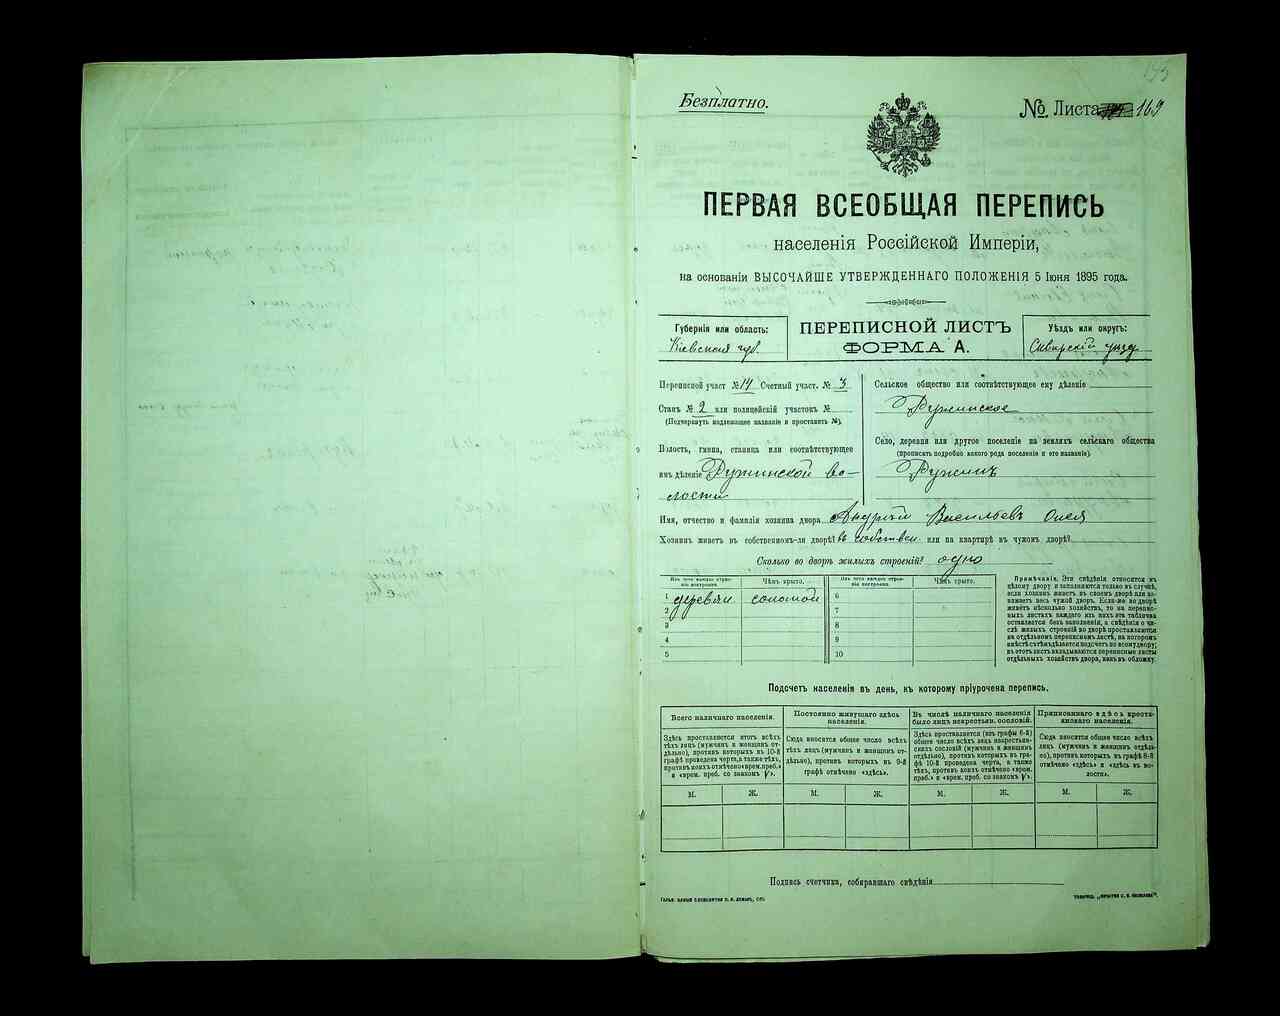 Безплатно.
№ Листа 169
ПЕРВАЯ ВСЕОБЩАЯ ПЕРЕПИСЬ
населенія Россійской Имперіи,
на основаніи ВЫСОЧАЙШЕ УТВЕРЖДЕННАГО ПОЛОЖЕНІЯ 5 Іюня 1895 года.
Губернія или область:
Кіевская губ.
ПЕРЕПИСНОЙ ЛИСТЪ
ФОРМА А.
Уѣздъ или округъ:
Сквирскій уѣзд
Переписной участ №14 Счетный участ. № 3
Станъ № 2 или полицейскій участокъ №
(Подчеркнуть надлежащее названіе и проставить №).
Волость, гмина, станица или соотвѣтствующее
имъ дѣленіе Ружинской во-
лости
Сельское общество или соотвѣтствующее ему дѣленіе
Ружинское
Село, деревня или другое поселеніе на земляхъ сельскаго общества
(прописать подробно какого рода поселеніе и его названіе).
Ружинъ
Имя, отчество и фамилія хозяина двора Андрій Васильевъ
Хозяинъ живетъ въ собственномъ-ли дворѣ? въ собствен. или на квартирѣ въ чужомъ дворѣ?
Сколько во дворѣ жилыхъ строеній? одно
Изъ чего каждое строе-
ніе построено.
Чѣмъ крыто.
Изъ чего каждое строе-
ніе построено.
Чѣмъ крыто.
1 деревян. соломой 6
2 7
3 8
4 9
5 10
Примѣчаніе. Эти свѣдѣнія относятся къ
цѣлому двору и заполняются только въ случаѣ,
если хозяинъ живетъ въ своемъ дворѣ или за-
нимаетъ весь чужой дворъ. Если-же во дворѣ
живётъ нѣсколько хозяйствъ, то на перепис-
ныхъ листахъ каждаго изъ нихъ эта табличка
оставляется безъ заполненія, а свѣдѣнія о чи-
слѣ жилыхъ строеній во дворѣ проставляются
на отдѣльномъ переписномъ листѣ, на которомъ
вмѣстѣ съ тѣмъ дѣлается подсчетъ по всему двору;
въ этотъ листъ вкладываются переписные листы
отдѣльныхъ хозяйствъ двора, какъ въ обложку.
Подсчетъ населенія въ день, къ которому пріурочена перепись.
Всего наличнаго населенія.
Здѣсь проставляется итогъ всѣхъ
тѣхъ лицъ (мужчинъ и женщинъ от-
дѣльно), противъ которыхъ въ 10-й
графѣ проведена черта, а также тѣхъ,
противъ коихъ отмѣчено «врем. преб.»
и «врем. преб. со знакомъ V».
Постоянно живущаго здѣсь
населенія.
Сюда вносится общее число всѣхъ
тѣхъ лицъ (мужчинъ и женщинъ от-
дѣльно), противъ которыхъ въ 9-й
графѣ отмѣчено «здѣсь».
Въ числѣ наличнаго населенія
было лицъ некрестьян. сословій.
Здѣсь проставляется (изъ графы 6-й)
общее число всѣхъ лицъ некрестьян-
скихъ сословій (мужчинъ и женщинъ
отдѣльно), противъ которыхъ въ гра-
фѣ 10-й проведена черта, а также
тѣхъ, противъ коихъ отмѣчено «врем.
преб.» и «врем. преб. со знакомъ V».
Приписаннаго здѣсь кресть-
янскаго населенія.
Сюда вносится общее число всѣхъ
лицъ (мужчинъ и женщинъ отдѣль-
но), противъ которыхъ въ графѣ 8-й
отмѣчено «здѣсь» и «здѣсь въ во-
лости».
М. Ж. М. Ж. М. Ж. М. Ж.
Подпись счетчика, собиравшаго свѣдѣнія